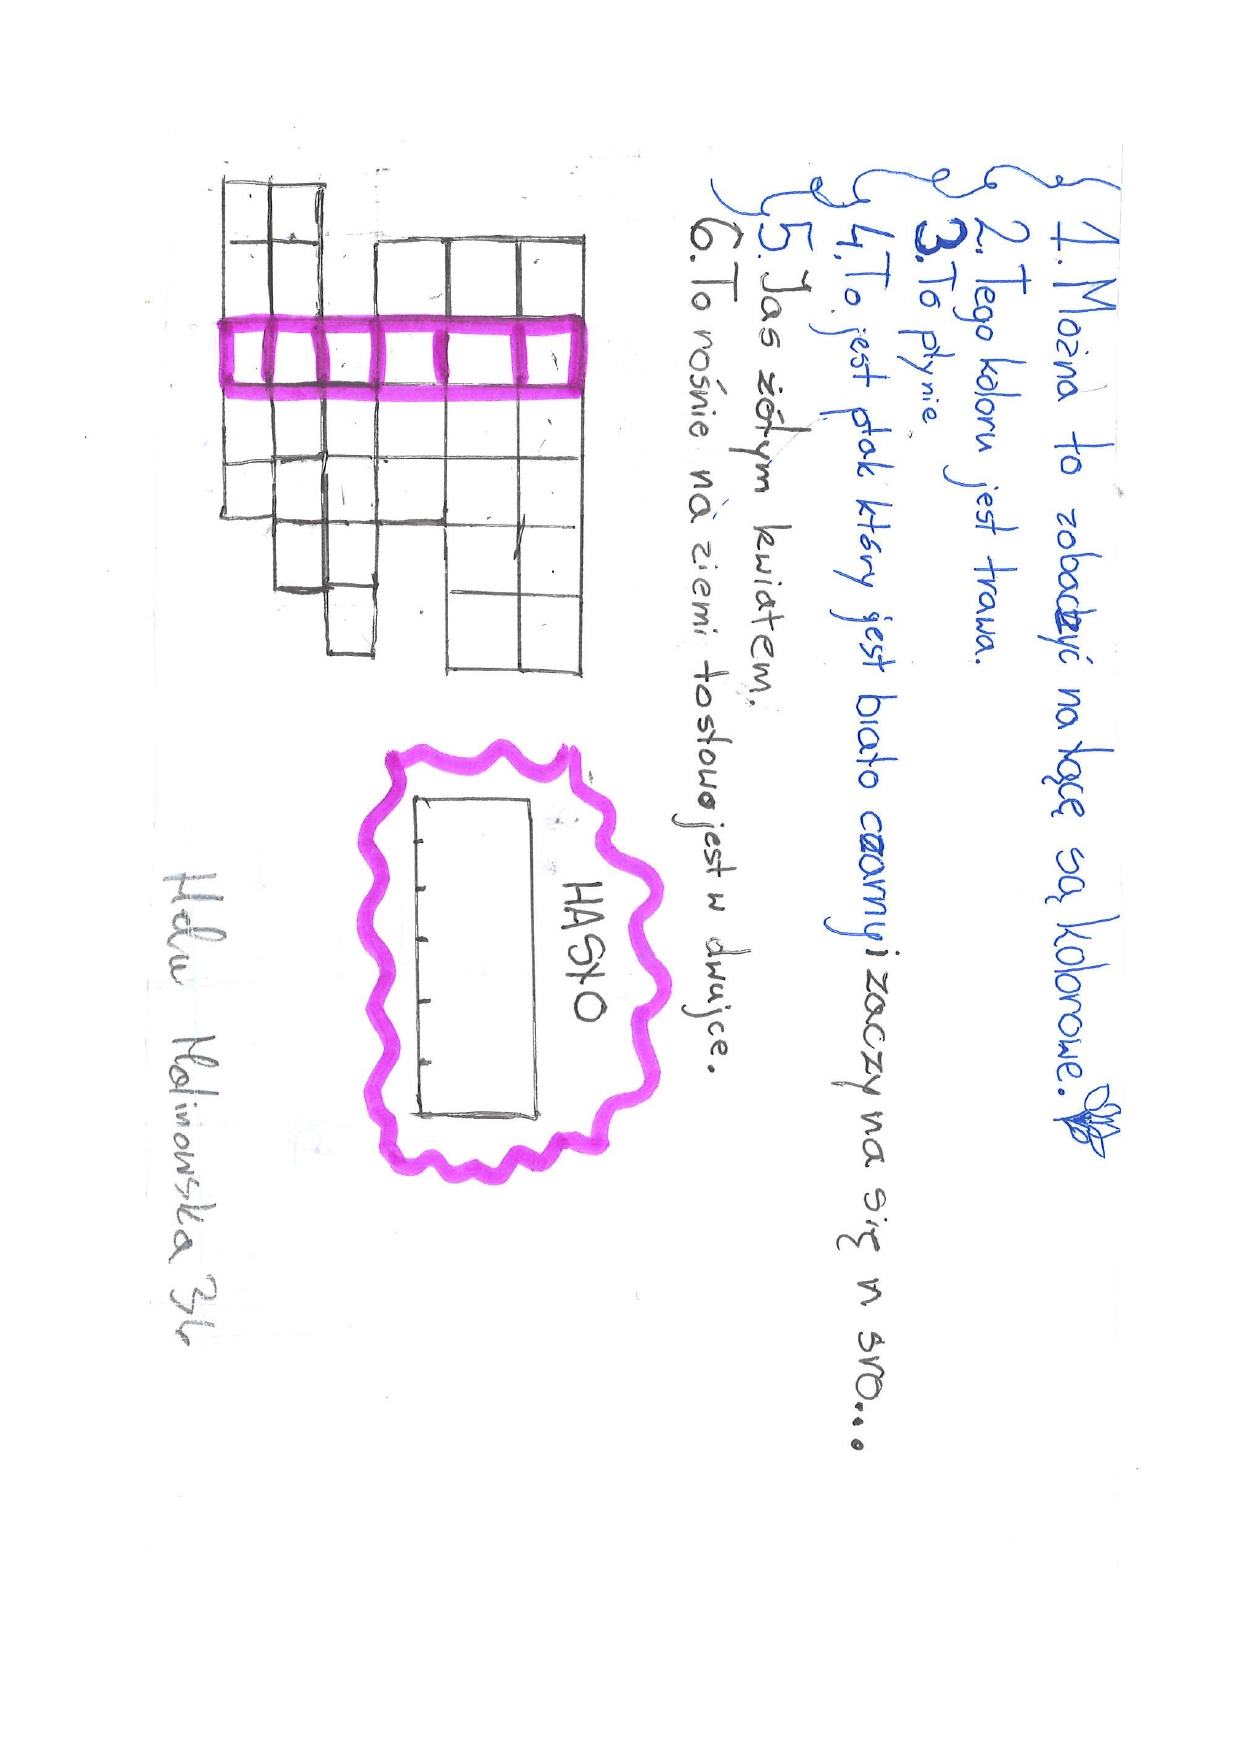 1. Można to zobaczyć na łące są kolorowe.
2. Tego koloru jest trawa.
3. To płynie
4. To jest ptak który jest biało czarny i zaczyna się n sro...
5. Jas żółtym kwiatem.
6. To rośnie na ziemi tosłowo jest w dwujce.
HASŁO
Malinowska 3b